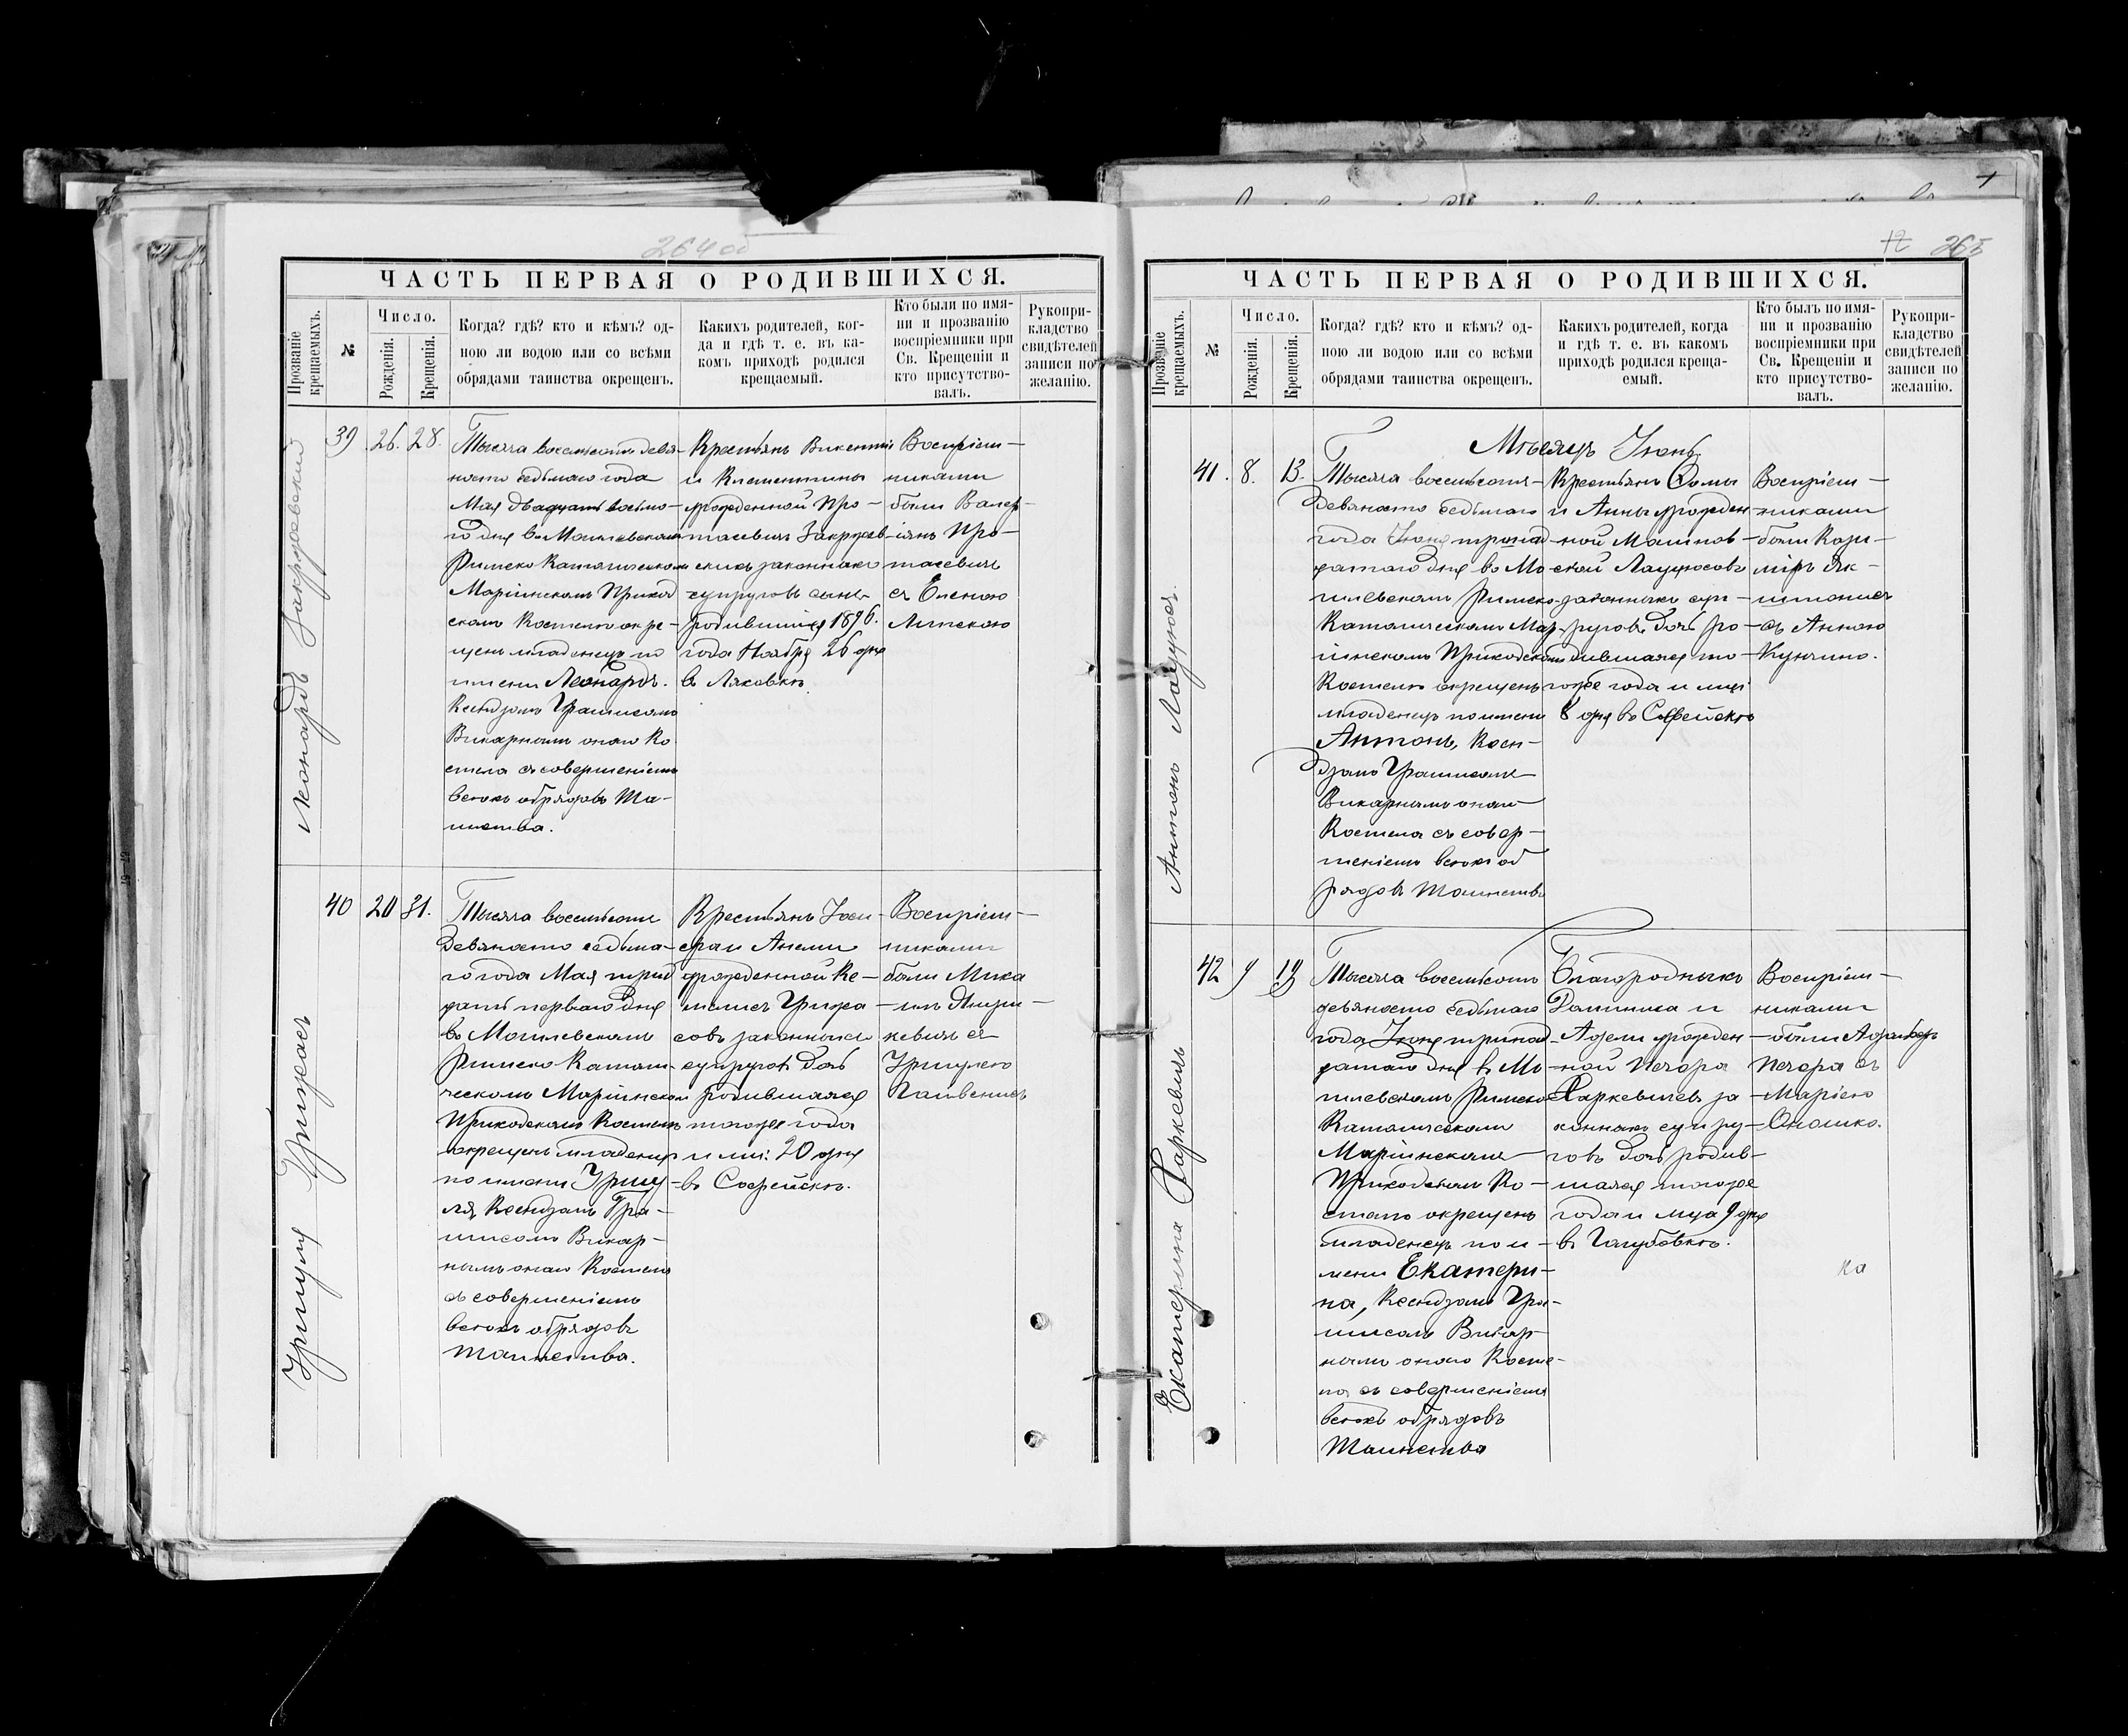 264 об
ЧАСТЬ ПЕРВАЯ О РОДИВШИХСЯ.
Прозваніе крещаемыхъ.
№
Число.
Рожденія.
Крещенія.
Когда? гдѣ? кто и кѣмъ? од-
ною ли водою или со всѣми
обрядами таинства окрещенъ.
Какихъ родителей, ког-
да и гдѣ т. е. въ ка-
комъ приходѣ родился
крещаемый.
Кто были по имя-
ни и прозванію
воспріемники при
Св. Крещеніи и
кто присутство-
валъ.
Рукопри-
кладство
свидѣтелей
записи по
желанію.
Леонардъ Закржевскій
39
26.
28.
Тысяча восемьсотъ девя-
носто седьмаго года
Мая двадцать восьмо-
го дня въ Могилевскомъ
Римско Католическомъ
Маріинскомъ Приход
скомъ Костелѣ окре-
щенъ младенецъ по
имени Леонардъ.
Ксендзомъ Грашисомъ
Викарнымъ онаго Ко
стела съ совершеніемъ
всѣхъ обрядовъ Та-
инства.
Крестьянъ Викентія
и Клементины
урожденной Про-
тасевичъ Закржев
скихъ законныхъ
супруговъ сынъ
родившійся 1896.
года Ноября 26 дня
въ Ляховкѣ.
Воспріем-
никами
были Валер-
іянъ Про-
тасевичъ
съ Еленою
Липскою
Уршуля Грижасъ
40
20
31.
Тысяча восемьсотъ
девяносто седьма-
го года Мая трид
цать перваго дня
въ Могилевскомъ
Римско Католи-
ческомъ Маріинскомъ
Приходскомъ Костелѣ
окрещенъ младенецъ
по имени Уршу-
ля, Ксендзомъ Гра-
шисомъ Викар-
нымъ онаго Костела
съ совершеніемъ
всѣхъ обрядовъ
Таинства.
Крестьянъ Іоси-
фа и Анели
урожденной Ке-
Грижа
совъ законныхъ
супруговъ дочь
родившаяся
тогоже года
и мц: 20 дня
въ Софейскѣ.
Воспріем-
никами
были Миха
илъ
кевичъ съ
Уршулею
+2 265
ЧАСТЬ ПЕРВАЯ О РОДИВШИХСЯ.
Прозваніе крещаемыхъ.
№
Число.
Рожденія.
Крещенія.
Когда? гдѣ? кто и кѣмъ? од-
ною ли водою или со всѣми
обрядами таинства окрещенъ.
Какихъ родителей, когда
и гдѣ т. е. въ какомъ
приходѣ родился креща-
емый.
Кто былъ по имя-
ни и прозванію
воспріемники при
Св. Крещеніи и
кто присутство-
валъ.
Рукопри-
кладство
свидѣтелей
записи по
желанію.
Мѣсяцъ Іюнь
Антонъ Лауцюсъ
41.
8.
13.
Тысяча восемьсотъ
девяносто седьмаго
года Іюня тринад
цатаго дня въ Мо
гилевскомъ Римско
Католическомъ Мар
іинскомъ Приходскомъ
Костелѣ окрещенъ
младенецъ по имени
Антонъ, Ксен-
дзомъ Грашисомъ
Викарнымъ онаго
Костела съ совер-
шеніемъ всѣхъ об
рядовъ Таинства
Крестьянъ Фомы
и Анны урожден-
ной Малинов-
ской Лауцюсовъ
законныхъ суп-
руговъ дочь ро-
дившаяся то-
гоже года и мця
8 дня въ Софейскѣ
Воспріем-
никами
были Кази-
міръ
съ Анною
Екатерина Харкевичъ
42
9
13
Тысяча восемьсотъ
девяносто седьмаго
года Іюня тринад
цатаго дня въ Мо
гилевскомъ Римско
Католическомъ
Маріинскомъ
Приходскомъ Ко-
стелѣ окрещенъ
младенецъ по и-
мени Екатери-
на, Ксендзомъ Гра-
шисомъ Викар-
нымъ онаго Косте-
ла съ совершеніемъ
всѣхъ обрядовъ
Таинства
Благородныхъ
Доминика и
Адели урожден-
ной Печора
Харкевичевъ за
конныхъ супру-
говъ дочь родив-
шаяся тогоже
года и мца 9 дня
въ Голубовкѣ.
Воспріем-
никами
были Адальбертъ
Печора съ
Маріею
Оношко.
ка